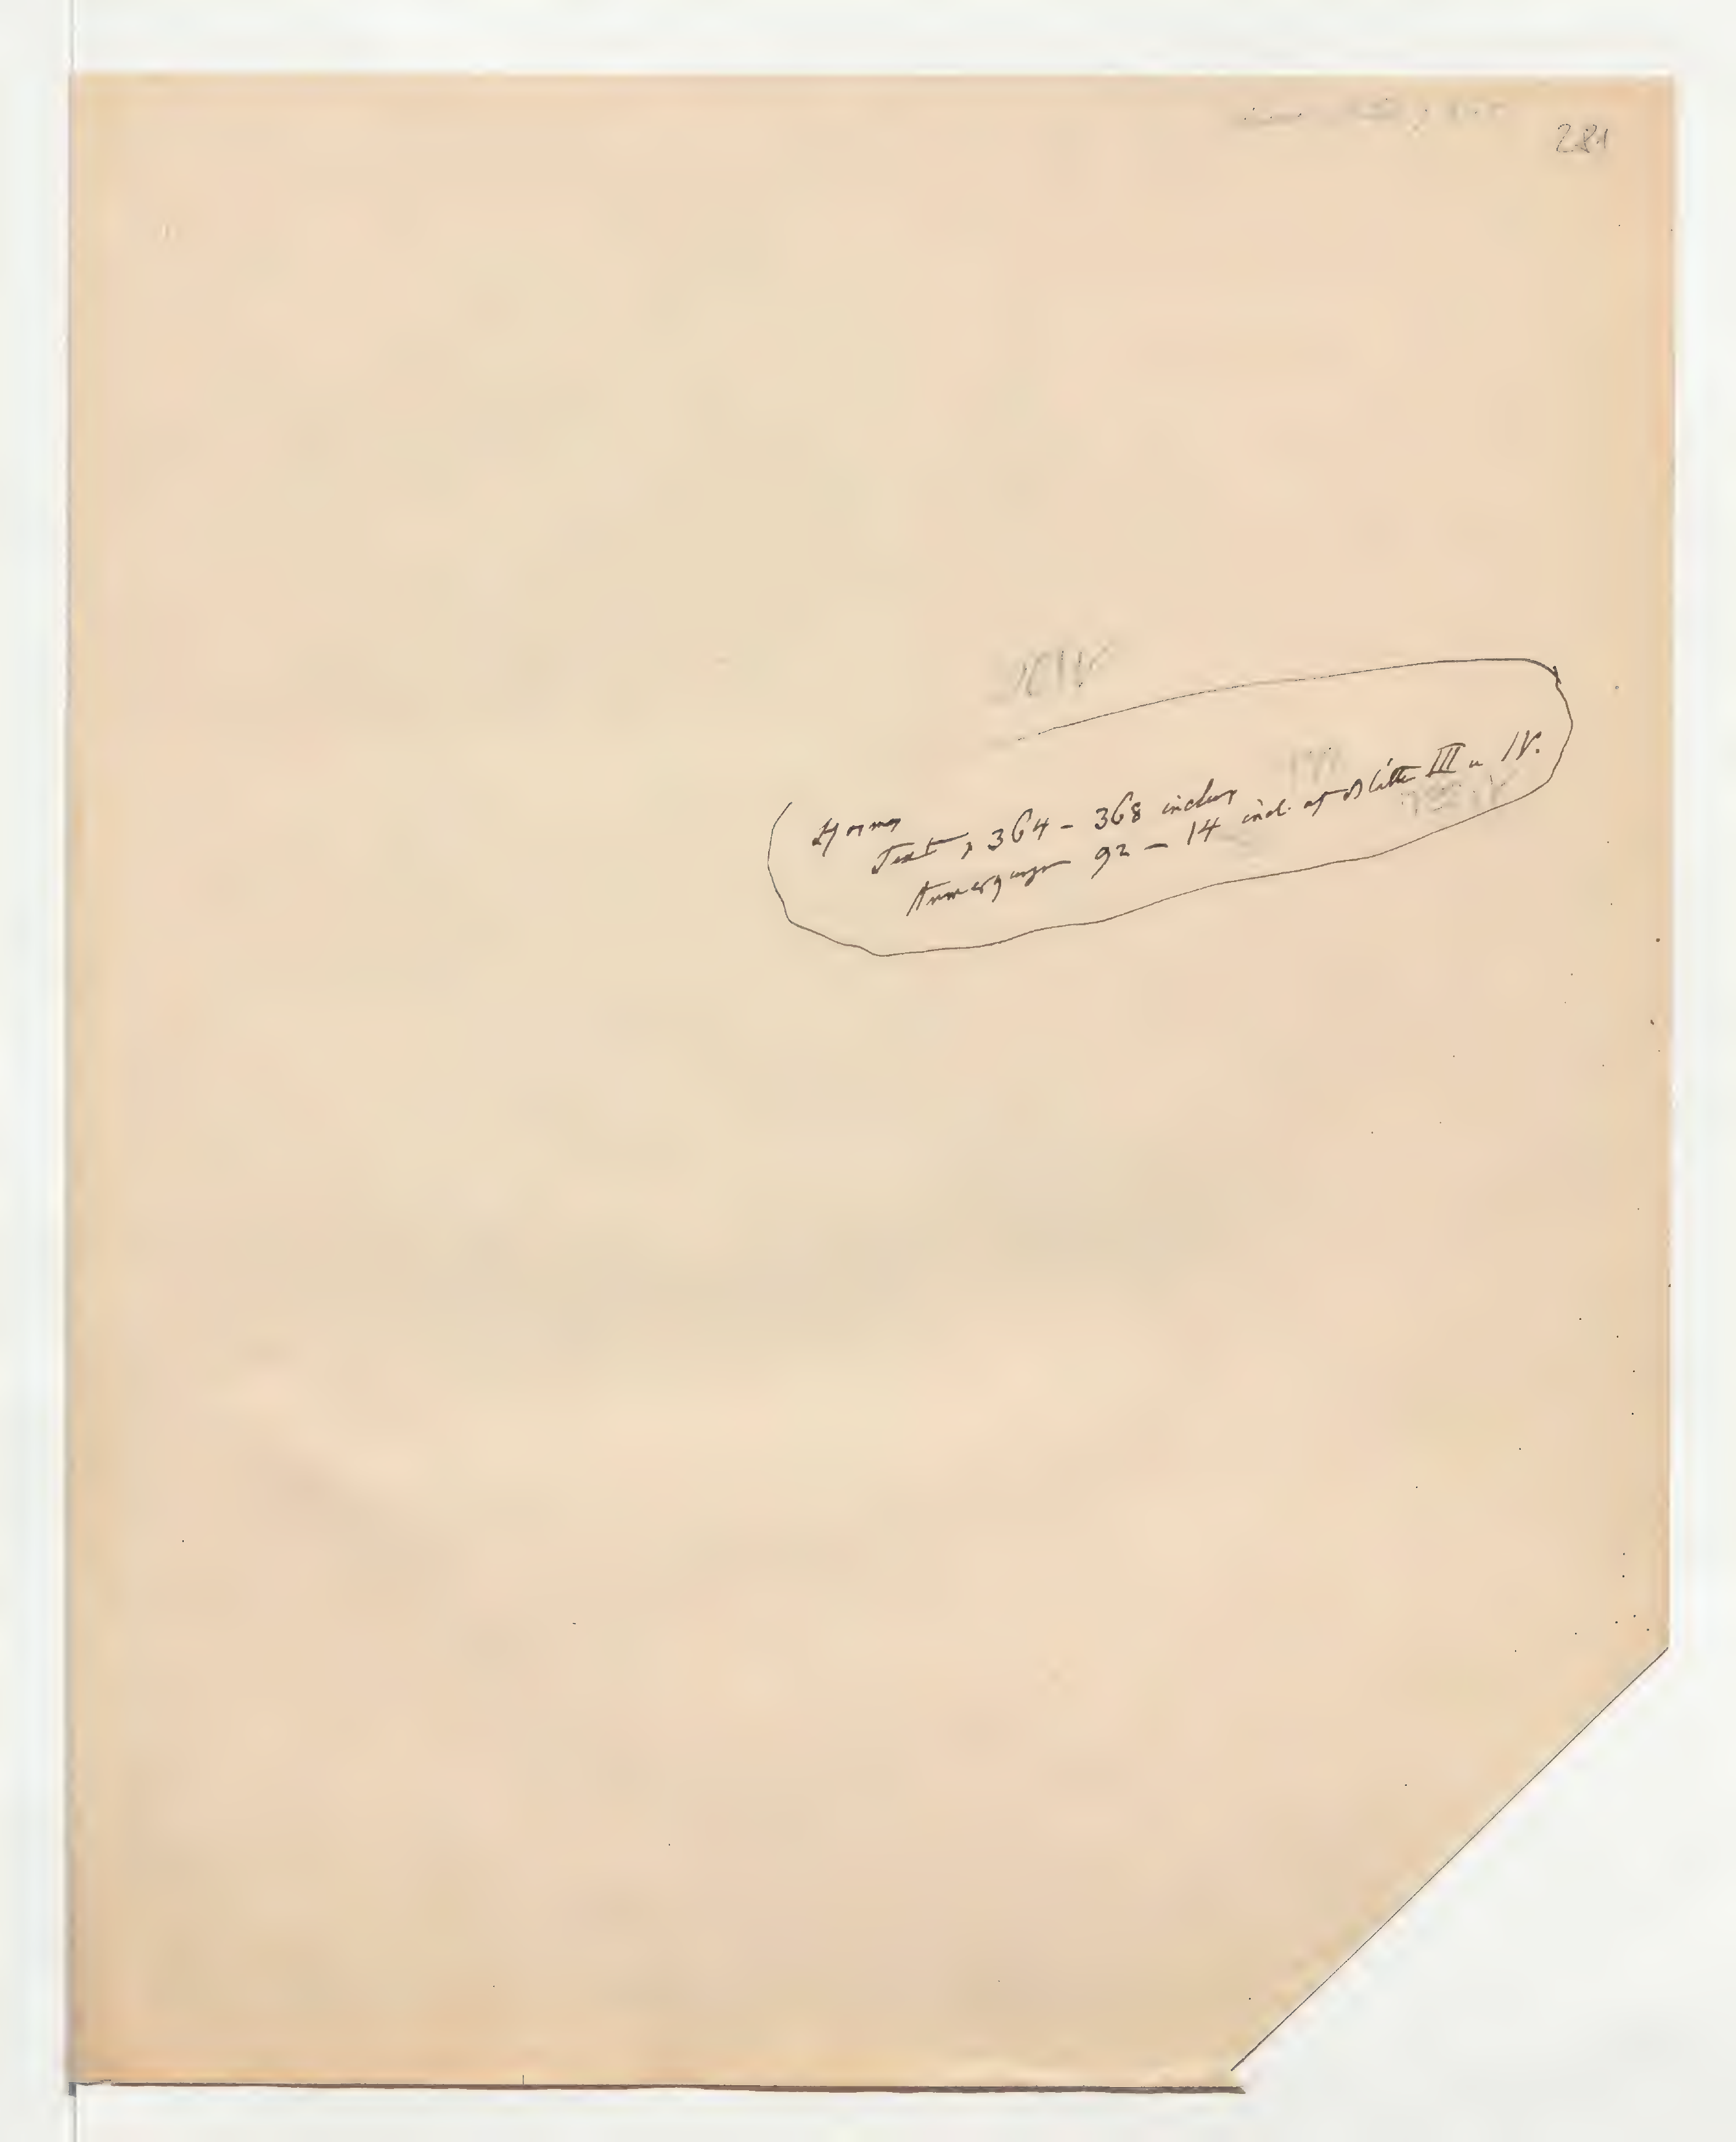 281
Hormos
Text, 364 – 368 inclus
Anmerkungen 92 – 14 incl. Blätter III u IV.